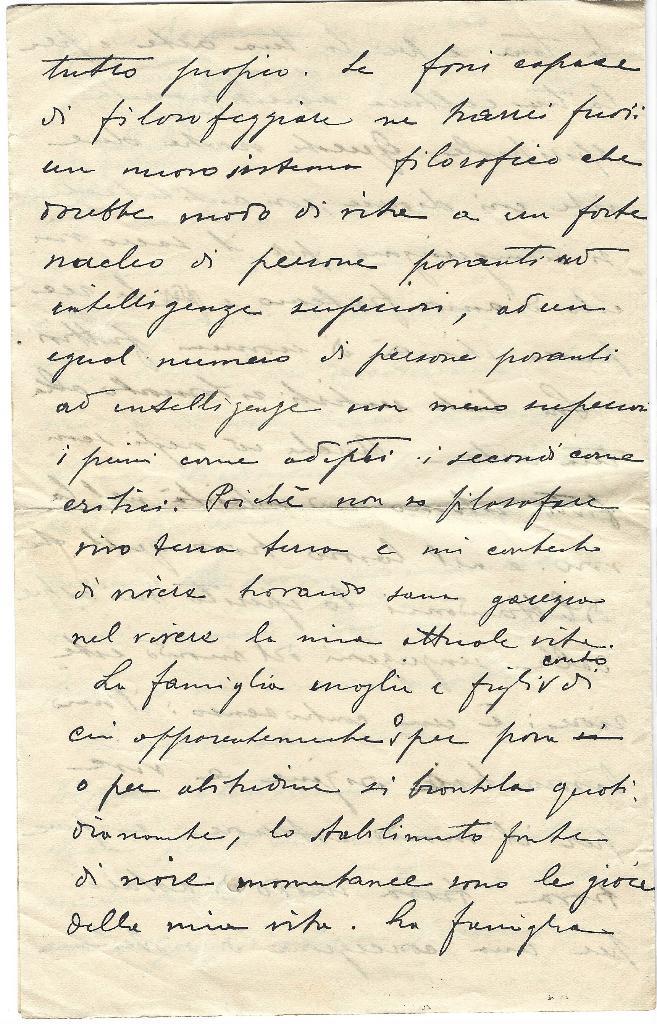 tutto proprio. Se fossi capace
di filosofeggiare ne trarrei fuori
un nuovo sistema filosofico che
darebbe modo di vita a un forte
nucleo di persone poranti ad
intelligenze superiori, ad un
egual numero di persone poranti
ad intelligenze non meno superiori
i primi come adepti i secondi come
critici. Poichè non so filosofare
vivo terra terra e mi contento
di vivere trovando sana
nel vivere la mia attuale vita.
La famiglia moglie e figli contro di
cui apparentemente o per posa
o per abitudine si brontola quoti.
dianamente, lo stabilimento fonte
di noie momentanee sono le gioie
della mia vita. La famiglia